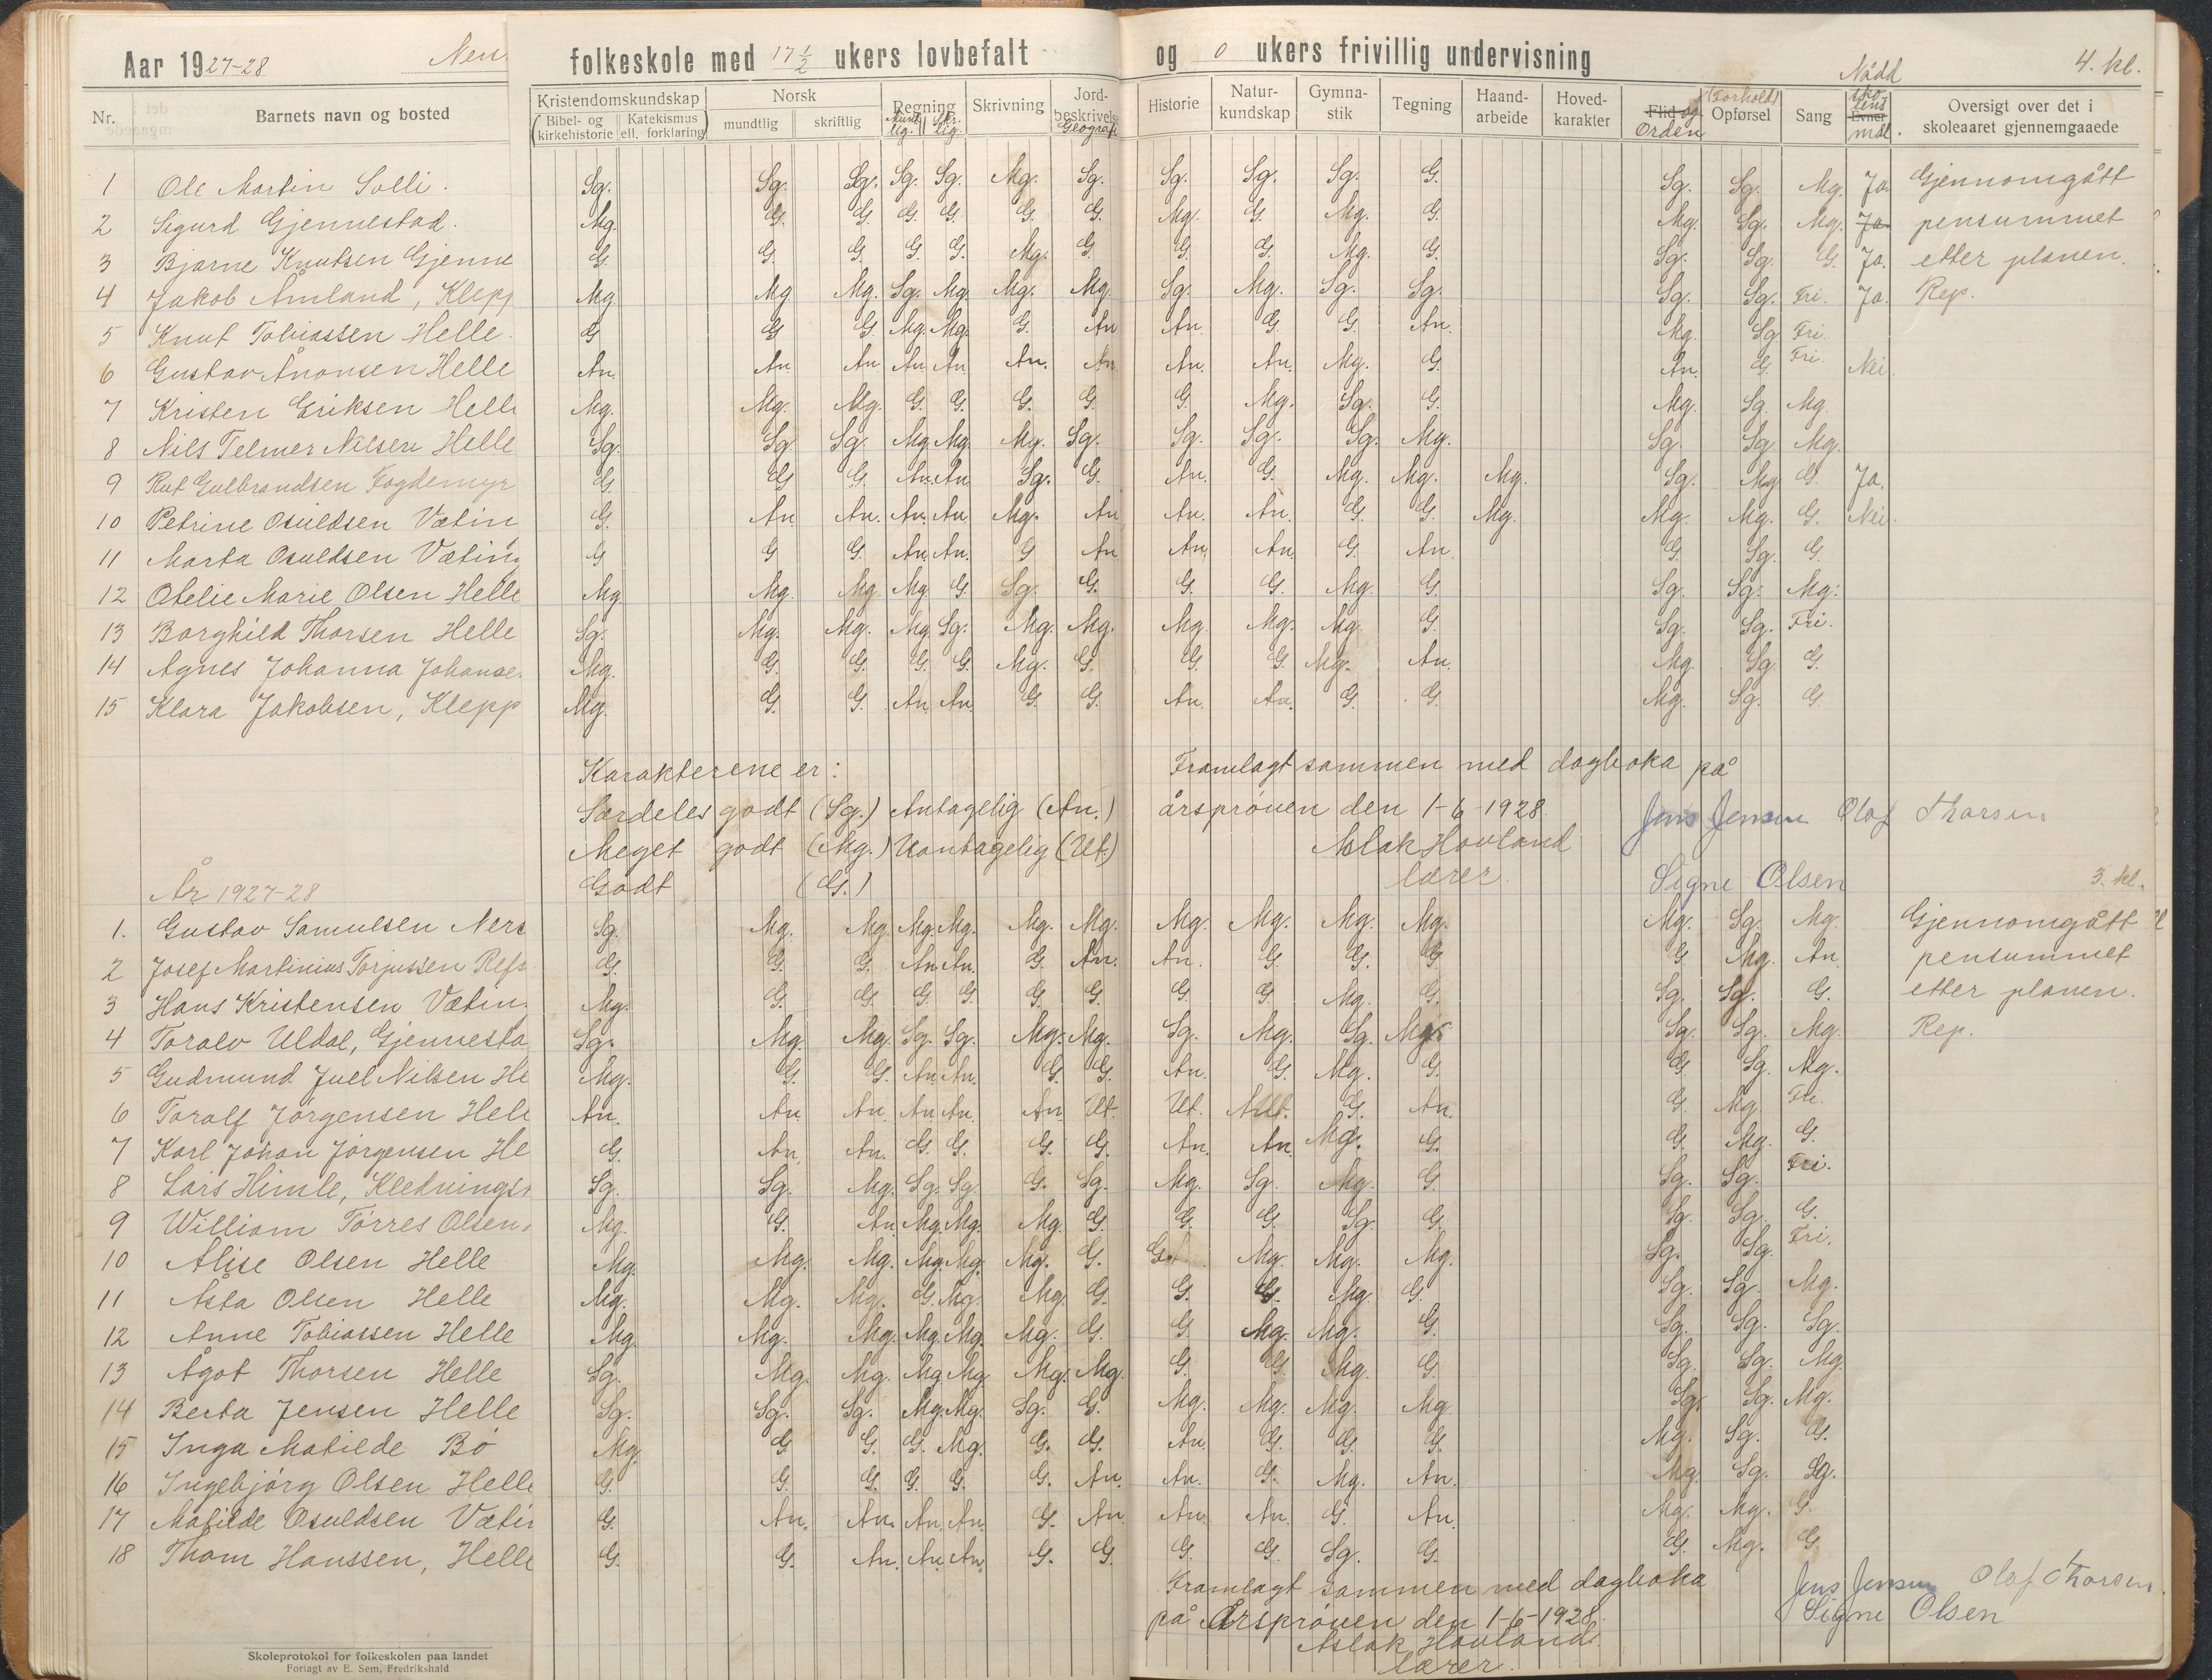 Aar 1927-28 folkeskole med 17 1/2 ukers lovbefalt og 0 ukers frivillig undervisning Nådd 4. kl.
Nr. Barnets navn og bosted Kristendomskundskap Norsk Regning Skrivning Jord-beskrivels Geografi Historie Natur-kundskap Gymna-stik Tegning Haand-arbeide Hoved-karakter Flid og Orden Forhold Opførsel Sang skolens Evner mål. Oversigt over det i skoleaaret gjennemgaaede
Bibel- og kirkehistorie Katekismus ell. forklaring mundtlig skriftlig Munt-lig. Skr.lig.
1 Ole Martin Solli. Sg. Sg. Sg. Sg. Sg. Mg. Sg. Sg. Sg. Sg. G. Sg. Sg. Mg. Ja. Gjennomgått
2 Sigurd Gjennestad. Mg. G. G. G. G. G. G. Mg. G. Mg. G. Mg. Sg. Mg. Ja pensummet
3 Bjarne Knutsen Gjenne G. G. G. G. G. Mg. G. G. G. Mg. G. Sg. Sg. G. Ja. etter planen.
4 Jakob Åmland, Klepp Mg Mg Mg. Sg. Mg. Mg. Mg. Sg. Mg. Sg. Sg. Sg. Sg. Fri. Ja. Rep.
5 Knut Tobiassen Helle. G G G Mg. Mg. G. An An. G. G. An. Mg. Sg Fri.
6 Gustav Ånonsen Helle An. An An An An An. An An. An. Mg. G. An. G. Fri. Nei.
7 Kristen Eriksen Helle Mg. Mg. Mg. G. G. G. G. G. Mg. Sg. G. Mg. Sg. Mg.
8 Nils Telmer Nilsen Helle Sg. Sg. Sg. Mg. Mg. Mg. Sg. Sg. Sg. Sg. Mg. Sg. Sg. Mg.
9 Rut Gulbrandsen Fogdemyr G. G G. An. An Sg. G. An. G. Mg. Mg. Mg. Sg. Mg G. Ja.
10 Petrine Osuldsen Vætin G. An. An. An. An Mg. An An. An. G. G. Mg. Mg. Mg. G. Nei.
11 Marta Osuldsen Væting G G G. An. An. G An An. An. G. An. G. Sg. G.
12 Otelie Marie Olsen Helle Mg. Mg. Mg. Mg. G. Sg. G. G. G. Mg. G. Sg. Sg. Mg.
13 Borghild Thorsen Helle Sg. Mg. Mg. Mg. Sg. Mg. Mg. Mg. Mg. Mg. G. Sg. Sg. Fri.
14 Agnes Johanna Johanse Mg. G. G. G. G. Mg. G. G. G. Mg. An. Mg. Sg. G.
15 Klara Jakobsen, Klepp Mg. G. G. An. An. G. G. An. An. G. G. Mg. Sg. G
Karakterene er: Framlagt sammen med dagboka på
Særdeles godt (Sg.) Antagelig (An.) årsprøven den 1-6-1928. Jens Jensen Olaf Thorsen
Meget godt (Mg.) Uantagelig (Ut.) Aslak Hovland
År 1927-28 Godt (G.) lærer. Signe Olsen 3. kl.
1. Gustav Samulsen Ners Sg. Mg. Mg. Mg. Mg. Mg. Mg. Mg. Mg. Mg. Mg. Mg. Sg. Mg. Gjennomgått
2 Josef Martinius Torjussen Refs G. G. G. An. An. G. An. An. G. G. G. G Mg. An. pensummet
3 Hans Kristensen Vætin. Mg. G. G. G. G. G. G. G. G. Mg. G. Sg. Sg. G. etter planen.
4 Toralv Uldal, Gjennesta Sg. Mg. Mg. Sg. Sg. Mg. Mg. Sg. Mg. Sg. Mg. Sg. Sg. Mg. Rep.
5 Gudmund Juel Nilsen He Mg. G. G. An. An. G. G. An. G. Mg. G. G Sg. Mg.
6 Toralf Jørgensen Hell An. An An An An. An Ut. Ut. G. An. G. Mg. Fri.
7 Karl Johan Jørgensen He G. An. An. G. G. G. G. An. An. Mg. G. G. Mg. G.
8 Lars Himle, Kledningsr Sg. Sg. Mg. Sg. Sg. G. Sg. Mg. Sg. Mg. G. Sg. Sg. Fri.
9 William Tørres Olsen, Mg. G. An Mg. Mg. Mg. G. G. G. Sg. G. Sg. Sg. G.
10 Alise Olsen Helle Mg. Mg. Mg. Mg. Mg. Mg. G. G. Mg. Mg. Mg. Sg. Sg. Fri.
11 Åsta Olsen Helle Mg. Mg. Mg. G. Mg. Mg. G. G. G. Mg. G. Sg. Sg. Mg.
12 Anne Tobiassen Helle Mg. Mg. Mg. Mg. Mg. Mg. G. G. Mg. Mg. G. Sg. Sg. Sg.
13 Ågot Thorsen Helle Sg. Mg. Mg. Mg. Mg. Mg. Mg. G. G. Mg. G. Sg. Sg. Mg.
14 Berta Jensen Helle Sg. Sg. Sg. Mg. Mg. Sg. G. Mg. Mg. Mg. Mg. Sg. Sg. Mg.
15 Inga Matilde Bø Mg. G. G. G. Mg. G. G. An. G. G. G. Mg. Sg. G.
16 Ingebjørg Olsen Helle G. G. G. G. G. G. An. An. G. Mg. An. Mg. Sg. Sg.
17 Matilde Osuldsen Vætin G. An. An. An. An. G. An. An. An. G. An. Mg. Mg. G.
18 Thom Hanssen, Helle G. G. An. An. An. G. G. G. G. Sg. G. G. Mg. G.
Framlagt sammen med dagboka Jens Jensen Olaf Thorsen.
på Årsprøven den 1-6-1928. Signe Olsen
Aslak Hovland.
lærer.
Skoleprotokol for folkeskolen paa landet
Forlagt av E. Sem, Fredrikshald